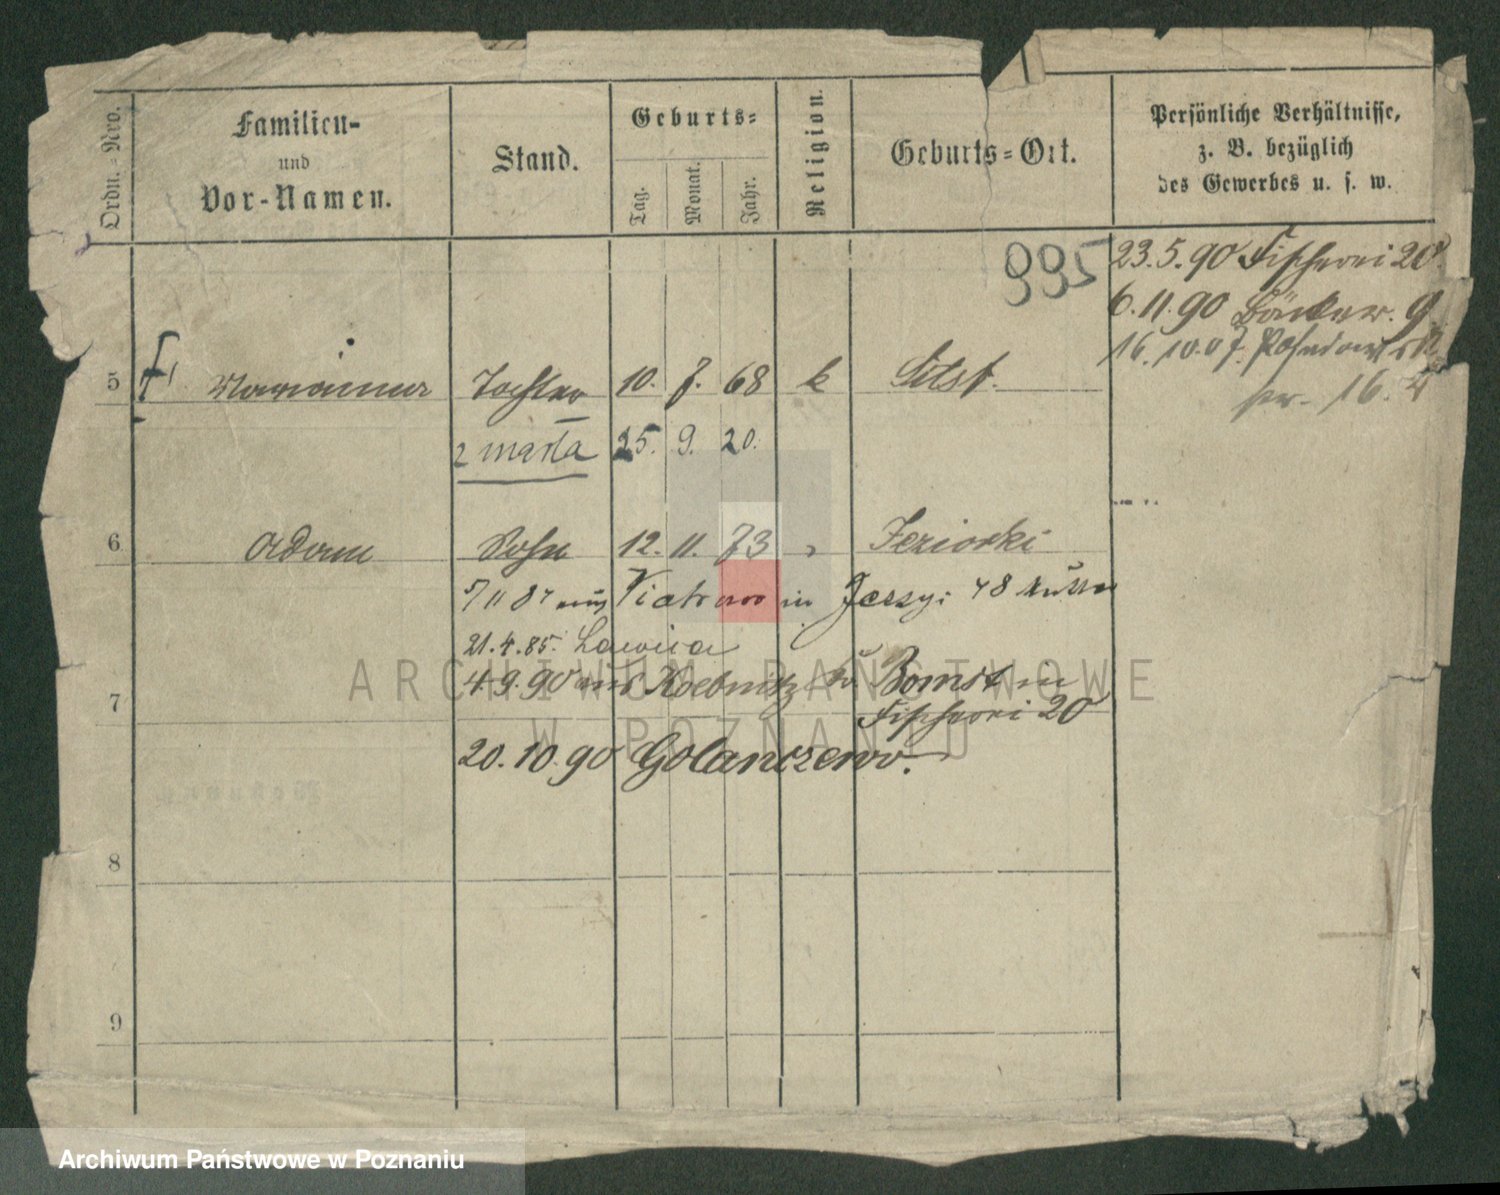 Ordn.=Nro.
Familien-
und
Vor-Namen.
Stand.
Geburts=
Tag.
Monat.
Jahr.
Religion.
Geburts=Ort.
Persönliche Verhältnisse,
z. B. bezüglich
des Gewerbes u. s. w.
995
23.5.90 Fischerei 20
6.11.90 Bäcker. 9
16.10.07.
16.
5 Marianna Tochter 10. 7. 68 k
zmarła 25. 9. 20.
6 Adam Sohn 12. 11. 73 Jeziorki
aus in 48
21.4.85. Lawica
4.9.90 aus Koebnitz Bomst in
7 Fischerei 20
20.10.90 Golanczewo.
8
9
ARCHIWUM PAŃSTWOWE
W POZNANIU
Archiwum Państwowe w Poznaniu